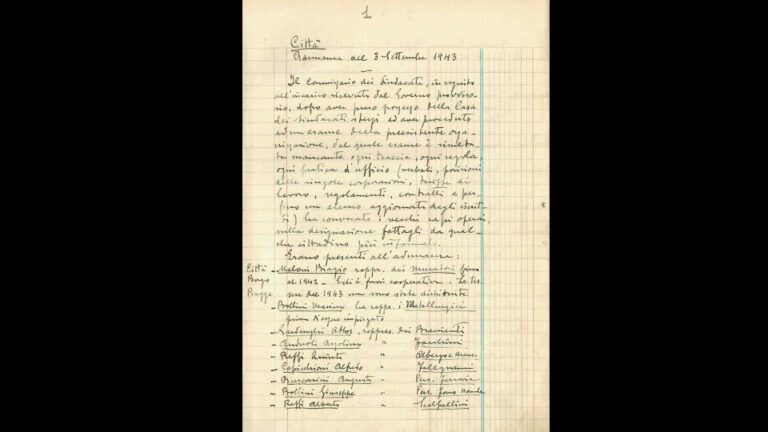 1
Città
Adunanza del 3 Settembre 1943
Il Commissario dei Sindacati, in seguito
all'incarico ricevuto dal Governo provviso-
rio, dopo aver preso possesso della Casa
dei Sindacati stessi ed aver proceduto
ad un esame della preesistente orga-
nizzazione, dal quale esame è risulta-
ta mancante ogni traccia, ogni regola,
ogni pratica d'ufficio (verbali, posizioni
delle singole corporazioni, tariffe di
lavoro, regolamenti, contratti e per-
fino un elenco aggiornato degli iscrit-
ti) ha convocato i vecchi capi operai,
sulla designazione fattagli da qual-
che cittadino più informato.
Erano presenti all'adunanza:
Città
Borgo
Piagge
- Meloni Biagio rappr. dei Muratori fino
al 1942 - Egli è fuori cooperativa. Le tes-
sere del 1943 non sono state distribuite
- Bollini Marino ha rappr. i Metallurgici
prima di essere impiegato
- Gardenghi Athos, rappres. dei Braccianti
- Andreoli " 
- Reffi " Albergo e mensa
- Capicchioni Alfredo " Falegnami
- Buscarini Augusto " Pers. Ferrovia
- Bollini Giuseppe " Pers.
- Reffi Alberto " Scalpellini